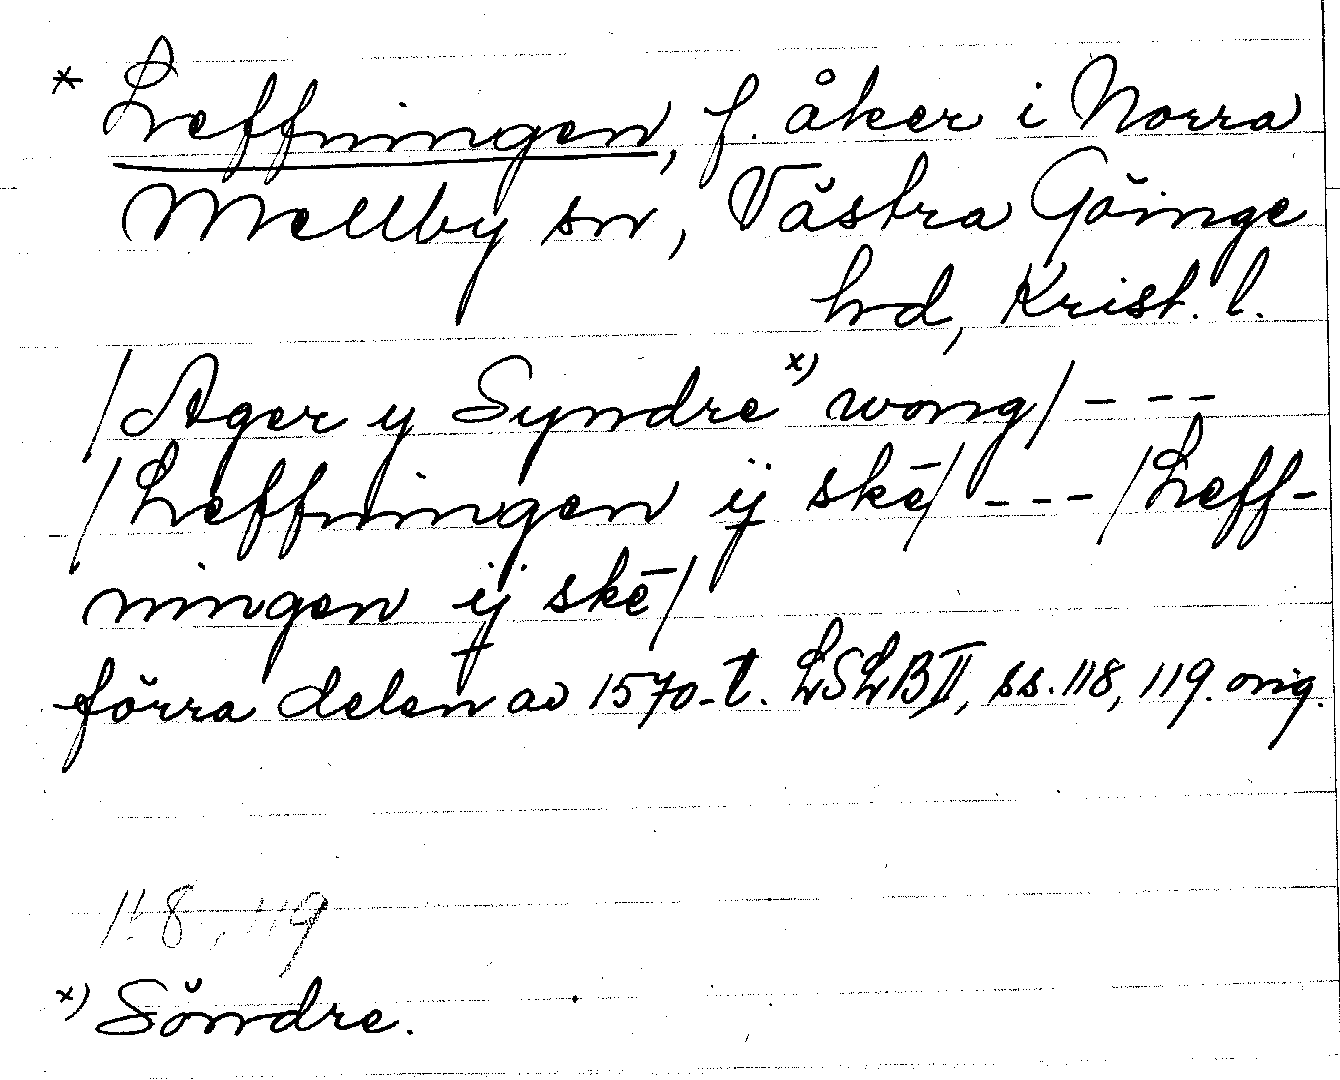 * Leffningen, f. åker i Norra
Mellby sn, Västra Göinge
hd, Krist. l.
/Ager y Syndre x) wong/ - - -
/Leffningen ij skē/ - - - /Leff-
ningen ij skē/
förra delen av 1570-t. LSLB II, ss. 118, 119. orig.
118, 119
x) Söndre.